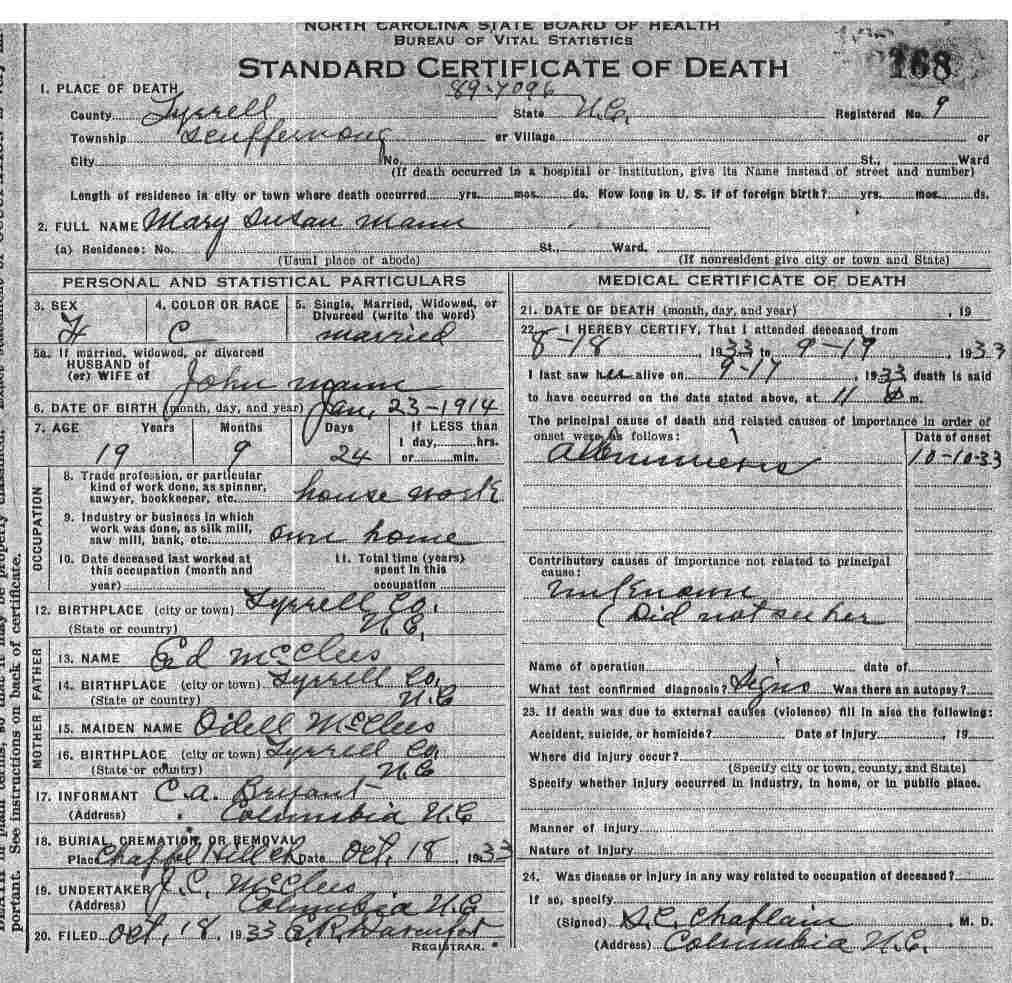 NORTH CAROLINA STATE BOARD OF HEALTH
BUREAU OF VITAL STATISTICS
STANDARD CERTIFICATE OF DEATH
168
89-7096
1. PLACE OF DEATH
County Tyrrell State N.C. Registered No. 9
Township Scuffernong or Village or
City No. St., Ward
(If death occurred in a hospital or institution, give its Name instead of street and number)
Length of residence in city or town where death occurred yrs. mos. ds. How long in U. S. if of foreign birth? yrs. mos. ds.
2. FULL NAME Mary Susan Mann
(a) Residence: No. St., Ward.
(Usual place of abode) (If nonresident give city or town and State)
PERSONAL AND STATISTICAL PARTICULARS
3. SEX 4. COLOR OR RACE 5. Single, Married, Widowed, or Divorced (write the word)
F C married
5a. If married, widowed, or divorced
HUSBAND of
(or) WIFE of John Mann
6. DATE OF BIRTH (month, day, and year) Jan, 23-1914
7. AGE Years Months Days If LESS than
1 day, hrs.
19 9 24 or min.
OCCUPATION
8. Trade profession, or particular
kind of work done, as spinner,
sawyer, bookkeeper, etc. house work
9. Industry or business in which
work was done, as silk mill,
saw mill, bank, etc. own home
10. Date deceased last worked at
this occupation (month and
year)
11. Total time (years)
spent in this
occupation
12. BIRTHPLACE (city or town) Tyrrell Co.
(State or country) N.C.
FATHER
13. NAME Ed McClees
14. BIRTHPLACE (city or town) Tyrrell Co.
(State or country) N.C
MOTHER
15. MAIDEN NAME Odell McClees
16. BIRTHPLACE (city or town) Tyrrell Co,
(State or country) N.C
17. INFORMANT C.A. Bryant
(Address) Columbia N.C
18. BURIAL, CREMATION, OR REMOVAL
Place Chappel Hill Ch Date Oct, 18, 1933
19. UNDERTAKER J.C. McClees
(Address) Columbia N.C
20. FILED Oct, 18, 1933 C.R. Davenport
REGISTRAR.
MEDICAL CERTIFICATE OF DEATH
21. DATE OF DEATH (month, day, and year) , 19
22. I HEREBY CERTIFY, That I attended deceased from
8-18, 1933 to 9-19, 1933
I last saw her alive on 9-17, 1933 death is said
to have occurred on the date stated above, at 11 m.
The principal cause of death and related causes of importance in order of
onset were as follows:
Date of onset
10-10-33
Contributory causes of importance not related to principal
cause:
unknown
(Did not see her
Name of operation date of
What test confirmed diagnosis? Signs Was there an autopsy?
23. If death was due to external causes (violence) fill in also the following:
Accident, suicide, or homicide? Date of injury , 19
Where did injury occur?
(Specify city or town, county, and State)
Specify whether injury occurred in industry, in home, or in public place.
Manner of injury
Nature of injury
24. Was disease or injury in any way related to occupation of deceased?
If so, specify
(Signed) S.C. Chaplain, M. D.
(Address) Columbia N.C.
portant. See instructions on back of certificate.